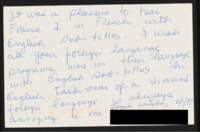 It was a pleasure to hear
France I in French with
English sub-titles. I wish
all your foreign language
programs were in their language
with English sub-titles. An
English talk-over of a second
foreign language is always
annoying to me